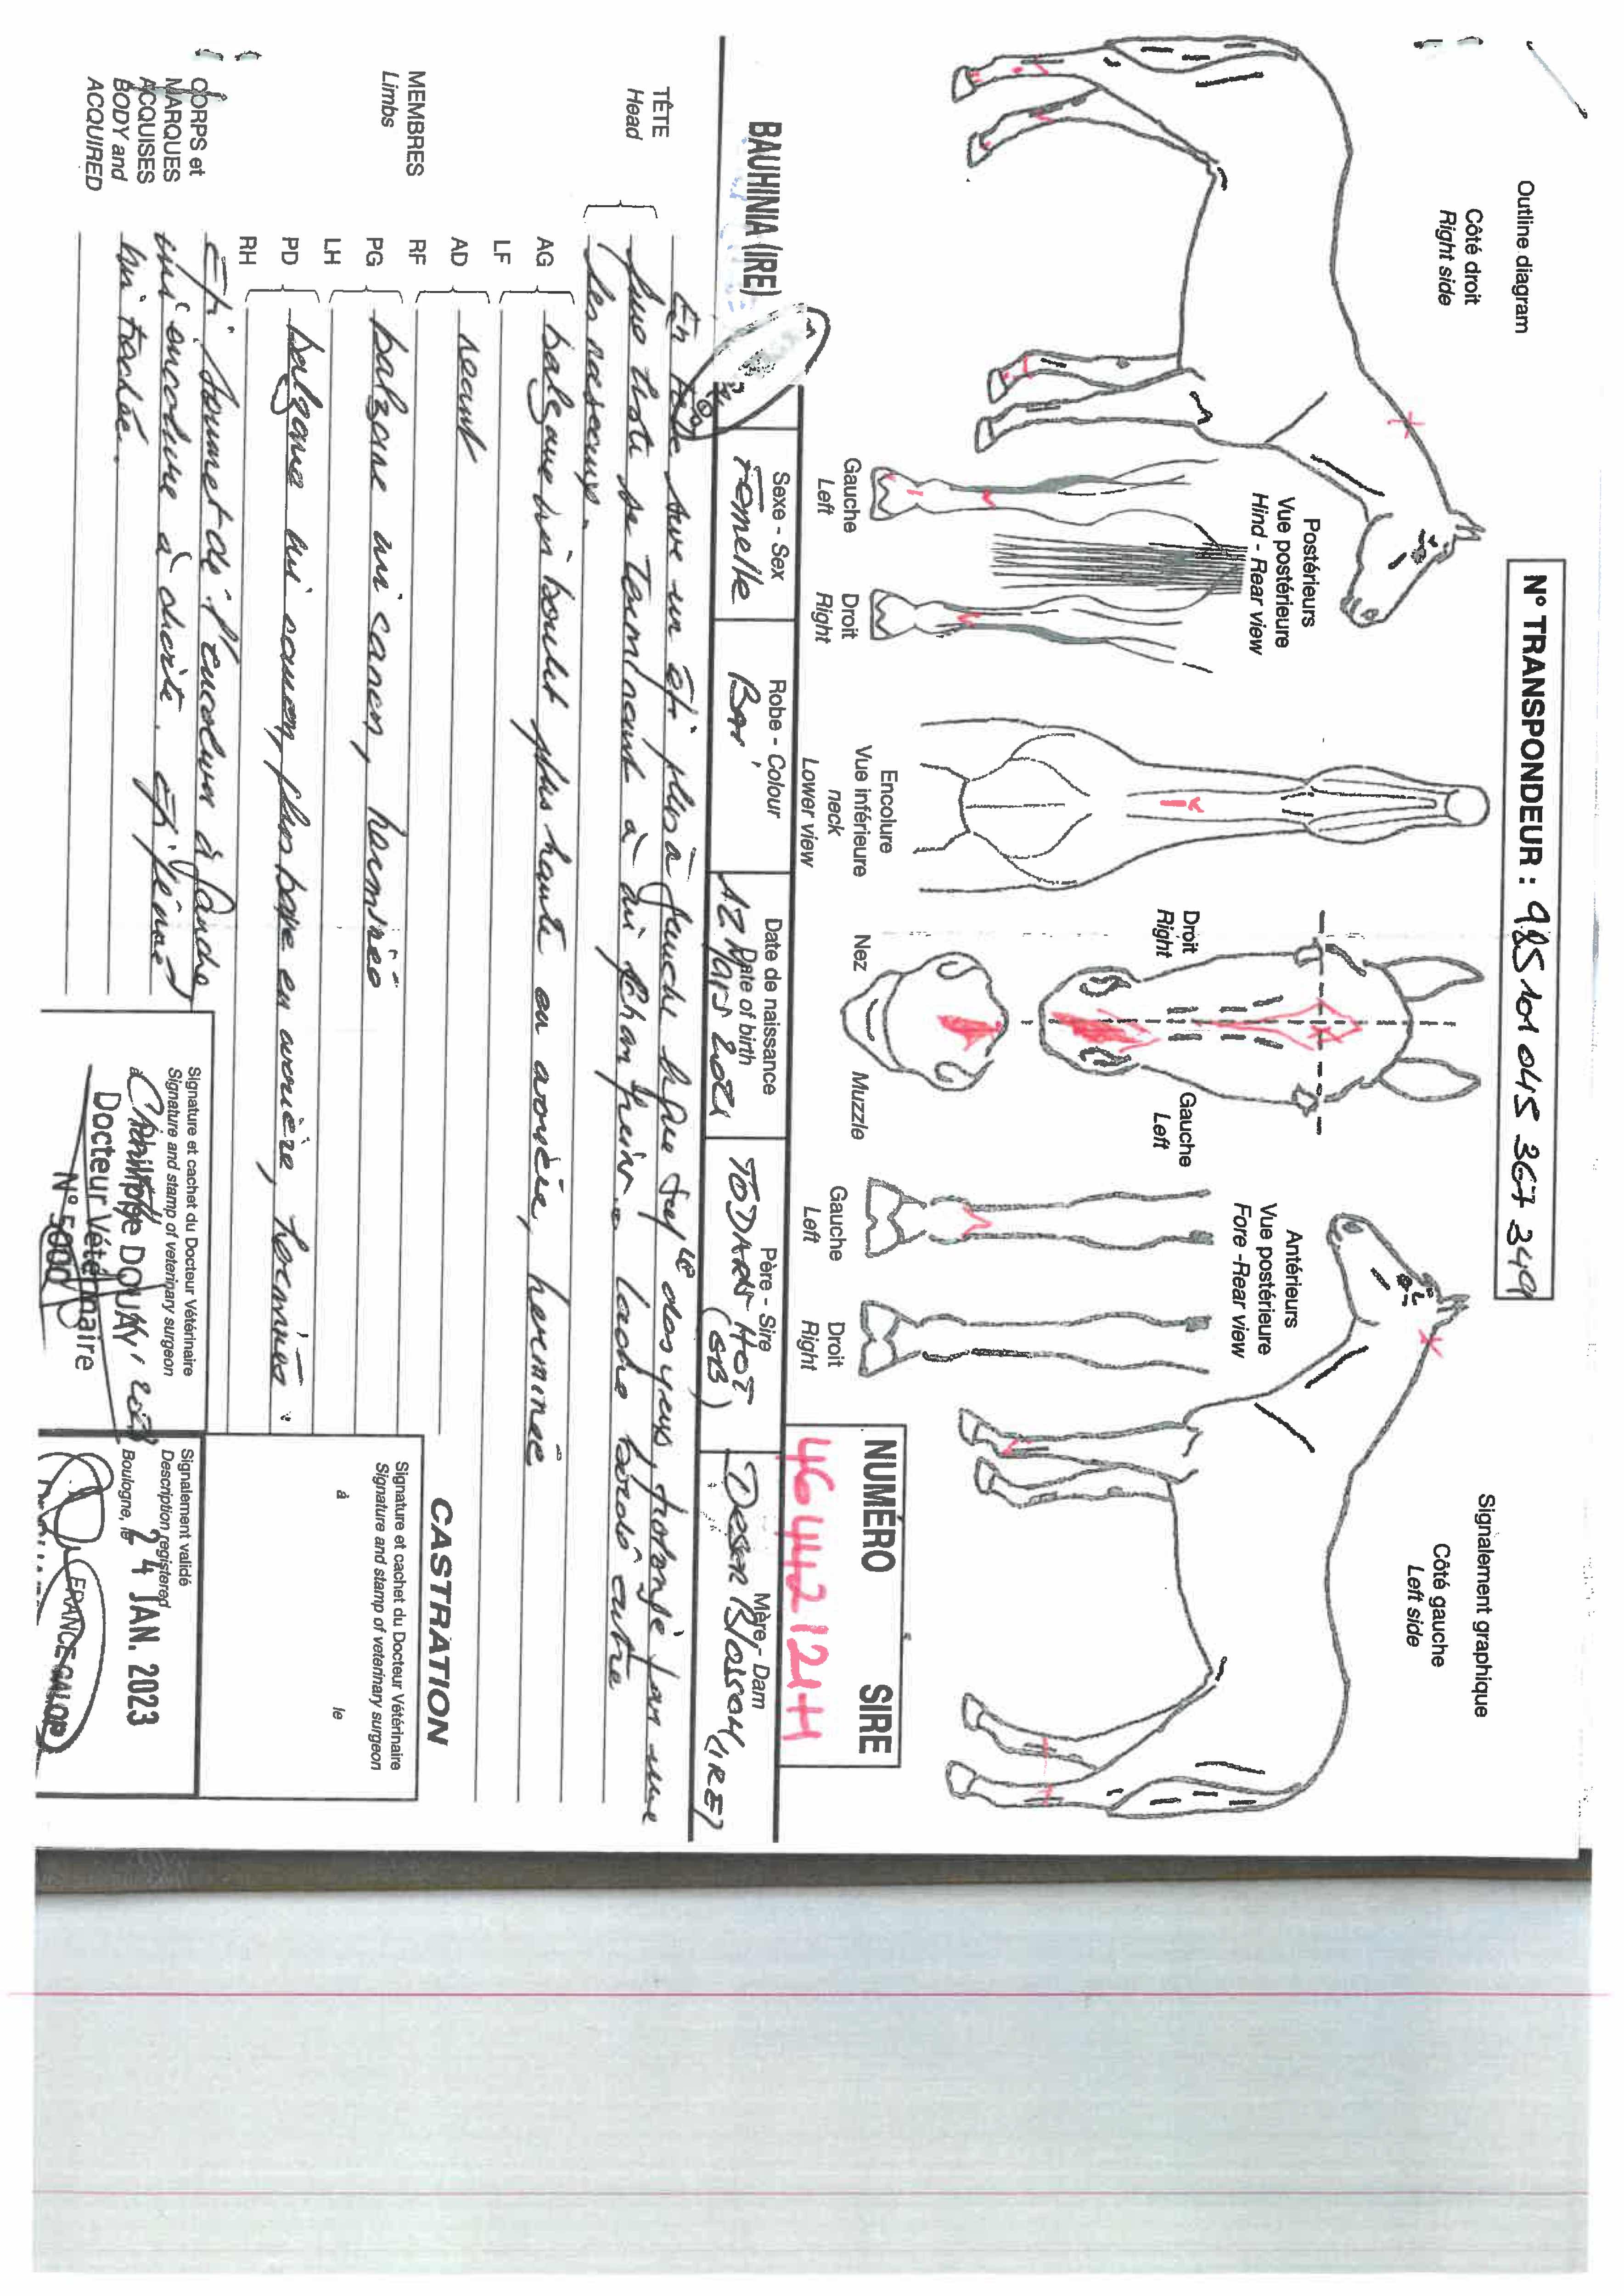 N° TRANSPONDEUR : 985 101 045 367 349
Outline diagram
Signalement graphique
Côté droit
Right side
Côté gauche
Left side
Postérieurs
Vue postérieure
Hind - Rear view
Gauche
Left
Droit
Right
Encolure
Vue inférieure
neck
Lower view
Droit
Right
Gauche
Left
Nez
Muzzle
Antérieurs
Vue postérieure
Fore - Rear view
Gauche
Left
Droit
Right
NUMÉRO SIRE
46442124H
BAUHINIA (IRE)
Sexe - Sex
Femelle
Robe - Colour
Bai
Date de naissance
Date of birth
12 Mars 2021
Père - Sire
TODARN HOT
(GB)
Mère - Dam
Deser Blossom (IRE)
TÊTE
Head
En tête sur un épi plus à gauche ligne sup des yeux, prolongé par une
fine liste se terminant à mi chanfrein. Ladre bordé entre
les naseaux.
MEMBRES
Limbs
AG
LF
balzane mi boulet plus haute en arrière, herminée
AD
RF
néant
PG
LH
balzane mi canon, herminée
PD
RH
balzane mi canon, plus basse en arrière, herminée.
CORPS et
MARQUES
ACQUISES
BODY and
ACQUIRED
Epi sommet de l'encolure à gauche
mi encolure à droite. Epi
mi trachée.
CASTRATION
Signature et cachet du Docteur Vétérinaire
Signature and stamp of veterinary surgeon
à le
Signature et cachet du Docteur Vétérinaire
Signature and stamp of veterinary surgeon
à
Philippe DOUAY
Docteur Vétérinaire
N° 5000
Signalement validé
Description registered
Boulogne, le
24 JAN. 2023
FRANCE GALOP